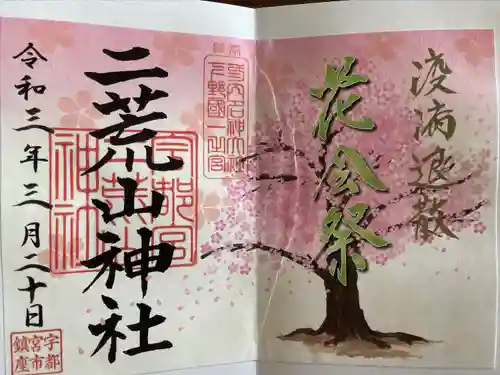 疫病退散
花会祭
名神大社
下野國一之宮
二荒山神社
宇都宮
二荒山
神社
令和三年三月二十日
宇都
宮市
鎮座